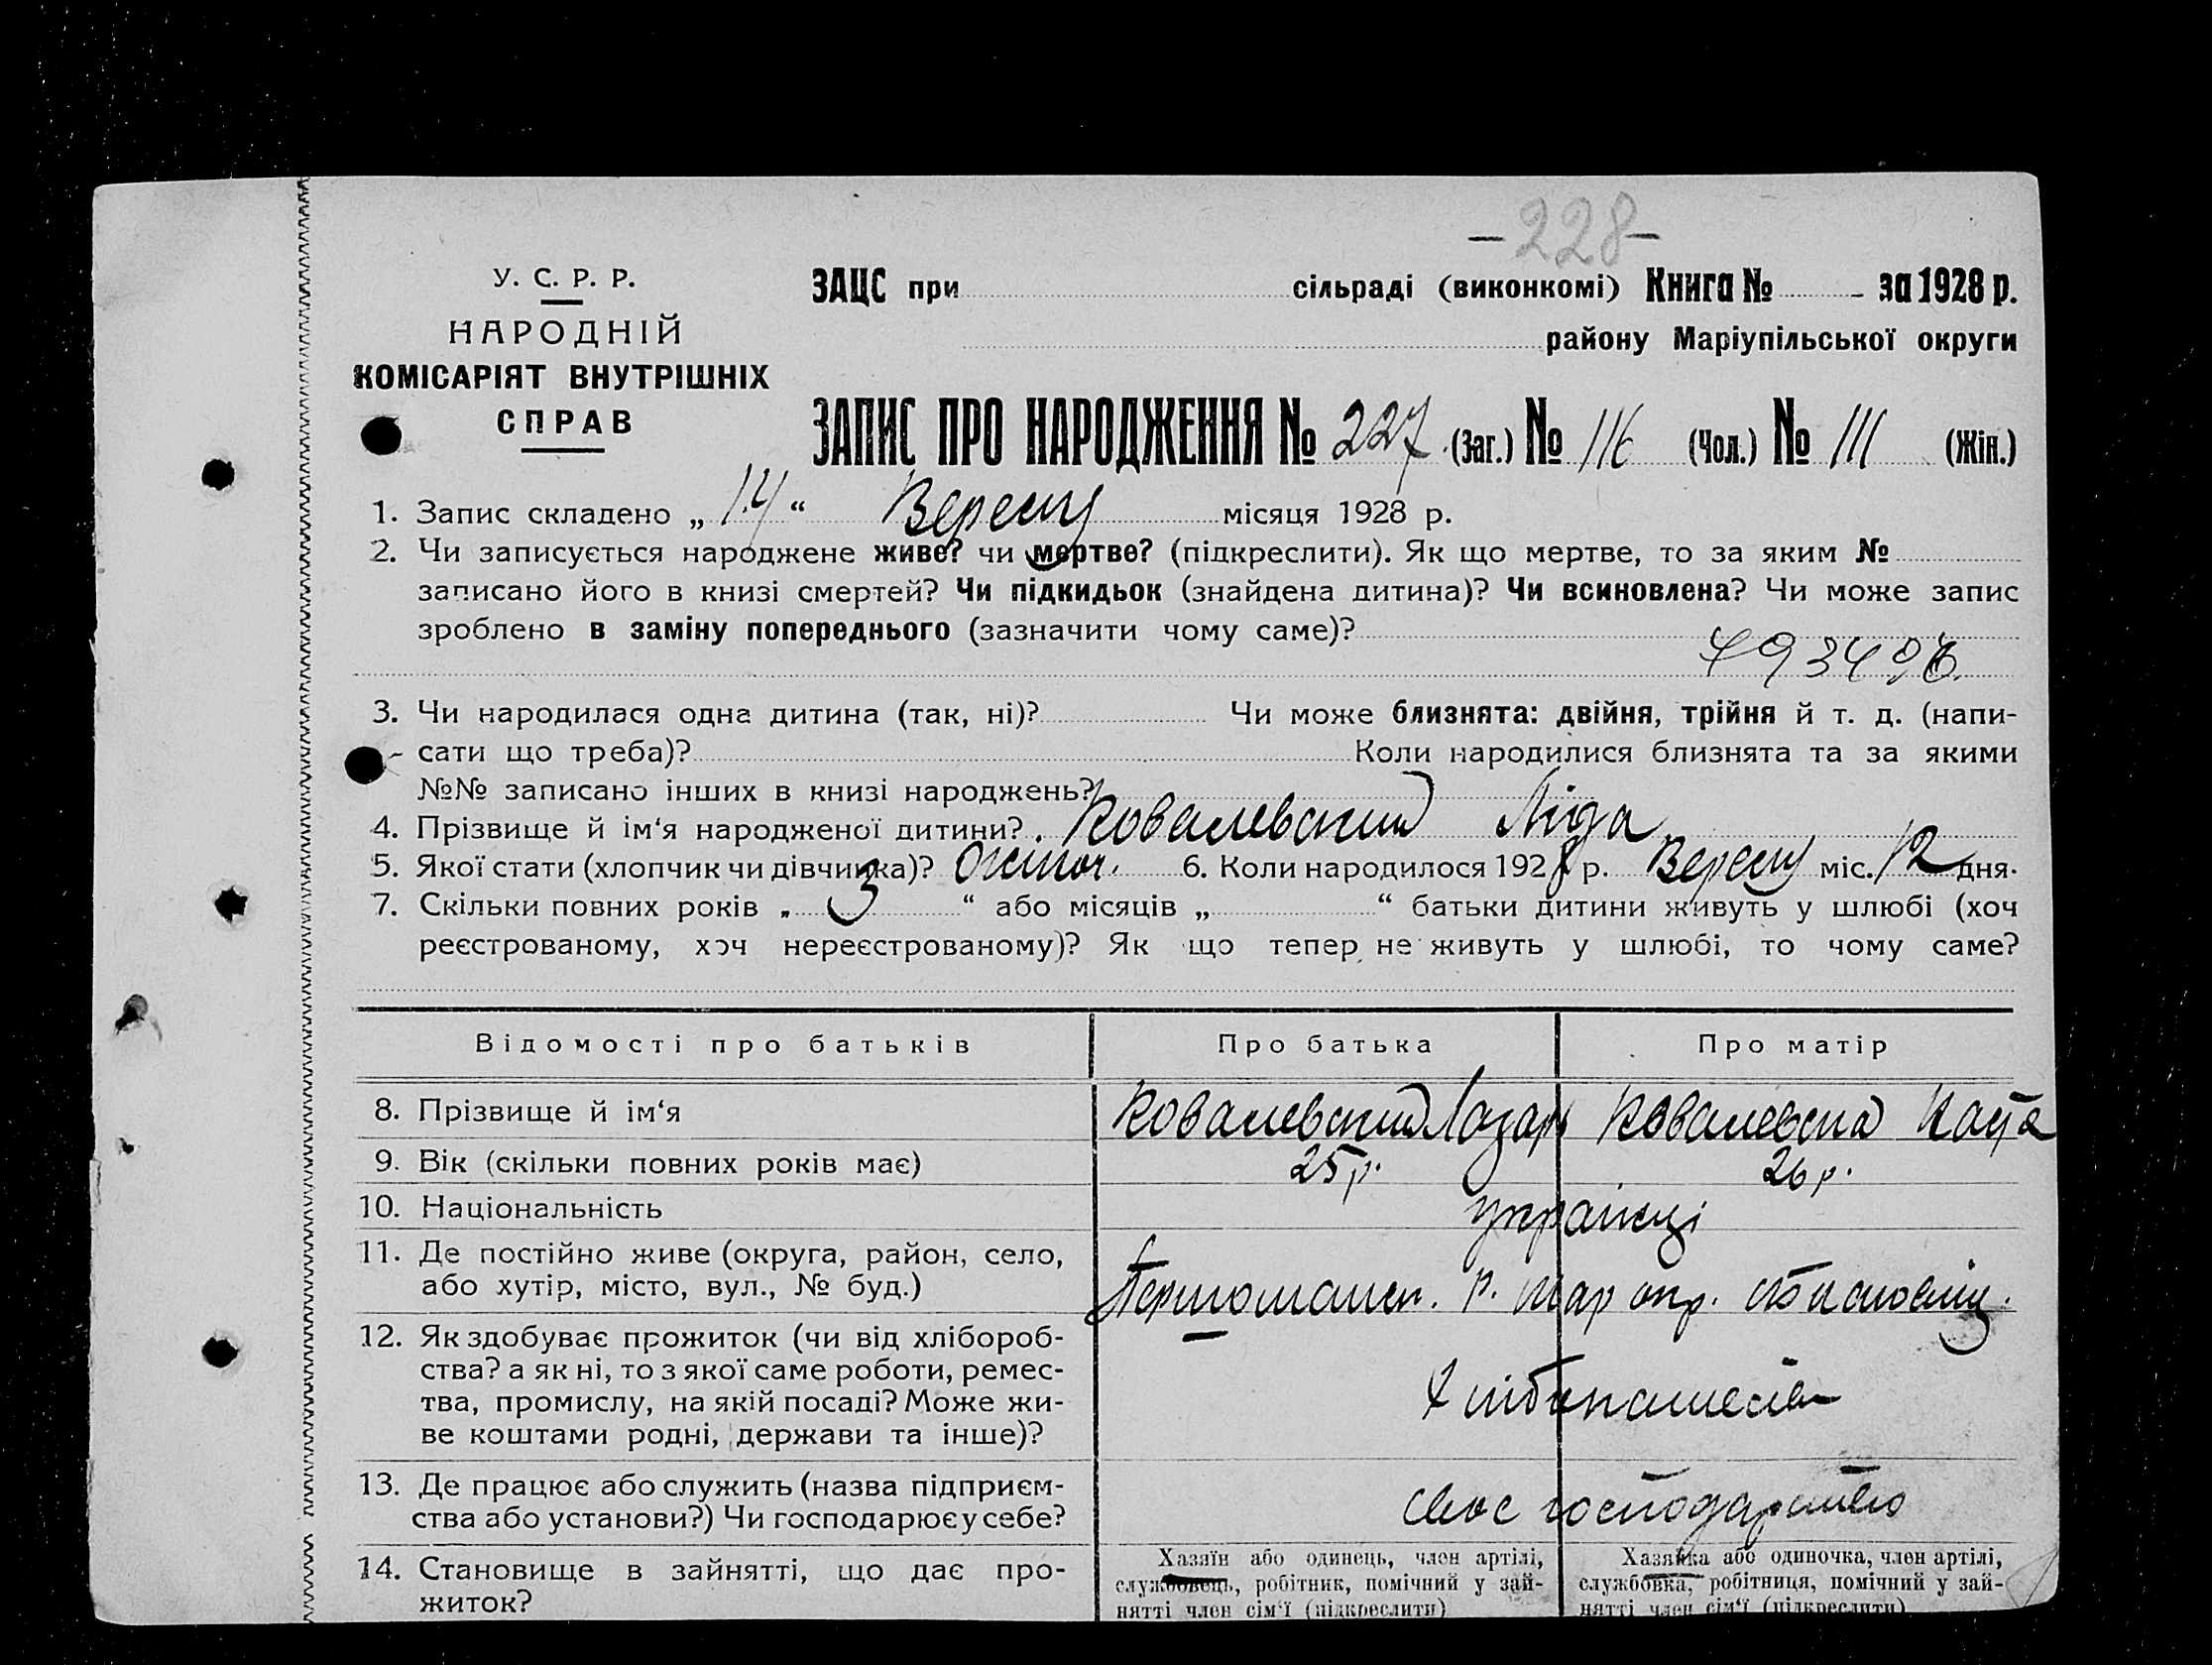 -228-
У. С. Р. Р.
НАРОДНІЙ
КОМІСАРІЯТ ВНУТРІШНІХ
СПРАВ
ЗАЦС при сільраді (виконкомі) Книга № за 1928 р.
району Маріупільської округи
ЗАПИС ПРО НАРОДЖЕННЯ № 227 (Заг.) № 116 (Чол.) № 111 (Жін.)
1. Запис складено „ 14 “ Вересня місяця 1928 р.
2. Чи записується народжене живе? чи мертве? (підкреслити). Як що мертве, то за яким №
записано його в книзі смертей? Чи підкидьок (знайдена дитина)? Чи всиновлена? Чи може запис
зроблено в заміну попереднього (зазначити чому саме)?
3. Чи народилася одна дитина (так, ні)? Чи може близнята: двійня, трійня й т. д. (напи-
сати що треба)? Коли народилися близнята та за якими
№№ записано інших в книзі народжень?
4. Прізвище й ім‘я народженої дитини? Ковалевский Ліда
5. Якої стати (хлопчик чи дівчинка)? 6. Коли народилося 1928 р. Вересня міс. 12 дня.
7. Скільки повних років „ 3 “ або місяців „ “ батьки дитини живуть у шлюбі (хоч
реєстрованому, хоч нереєстрованому)? Як що тепер не живуть у шлюбі, то чому саме?
Відомості про батьків Про батька Про матір
8. Прізвище й ім‘я Ковалевский Лазарь Ковалевска Катя
9. Вік (скільки повних років має) 25 р. 26 р.
10. Національність українці
11. Де постійно живе (округа, район, село,
або хутір, місто, вул., № буд.) р. Мар окр.
12. Як здобуває прожиток (чи від хлібороб-
ства? а як ні, то з якої саме роботи, ремес-
тва, промислу, на якій посаді? Може жи-
ве коштами родні, держави та інше)?
13. Де працює або служить (назва підприєм-
ства або установи?) Чи господарює у себе? своє господарство
14. Становище в зайнятті, що дає про-
житок?
Хазяїн або одинець, член артілі,
службовець, робітник, помічний у зай-
нятті член сім‘ї (підкреслити)
Хазяйка або одиночка, член артілі,
службовка, робітниця, помічний у зай-
нятті член сім‘ї (підкреслити)